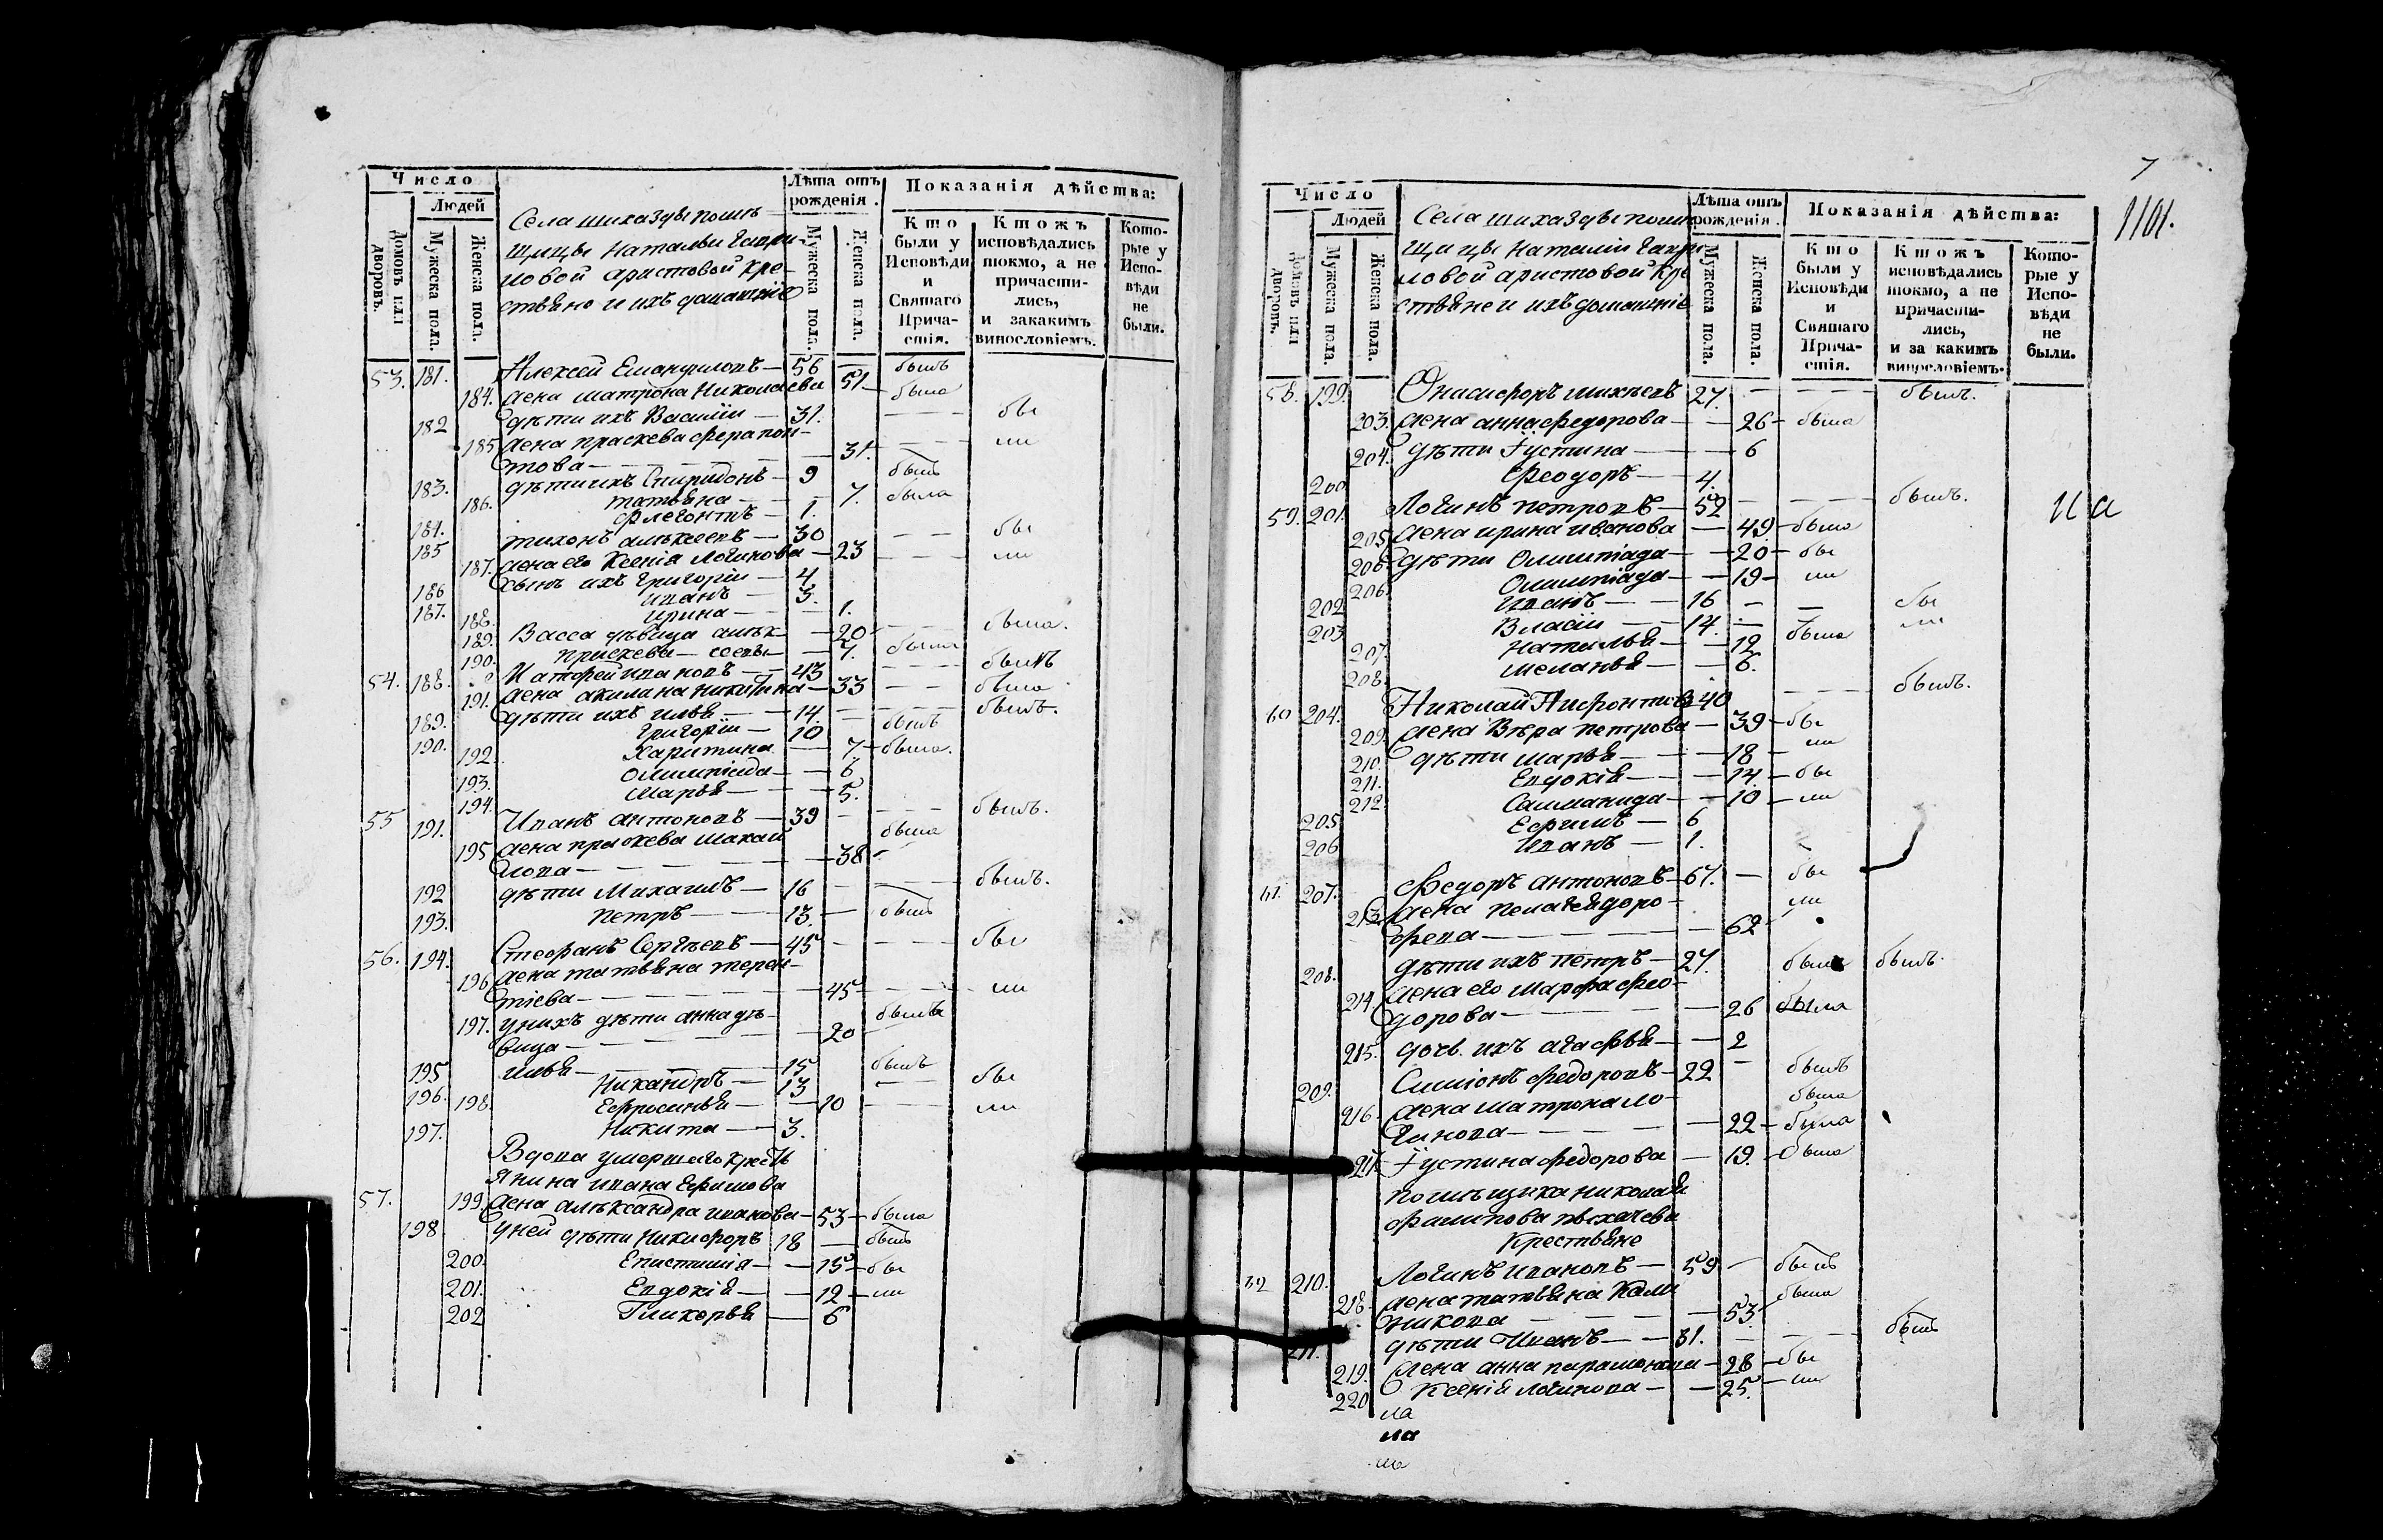 Число
Людей
Домовъ или дворовъ.
Мужеска пола.
Женска пола.
Села шихазды помѣ
щицы Натальи Гаври
ловой аристовой кре
стьяне и ихъ домашніе
Лѣта отъ рожденія.
Мужеска пола.
Женска пола.
Показанія дѣйства:
Кто были у Исповѣди и Святаго Причастія.
Ктожъ исповѣдались токмо, а не причастились, и закакимъ винословіемъ.
Которые у Исповѣди не были.
53. 181. Алексей Емануиловъ — 56 былъ
184. жена матрона Николаева 51 — была
182 дѣти ихъ Василіи — 31. бы
185 жена праскева ферапон
това — 31. ли
183. дѣти ихъ Спиридонъ — 9 былъ
186. татьяна — 7. была
184. флегонтъ — 1.
185 тихонъ алѣксеевъ — 30 бы
187. жена его Ксенія Логинова — 23 ли
186 сынъ ихъ григоріи — 4
187. иванъ — 3.
188. ирина — 1.
189. Васса дѣвица алѣк — 20 была.
190. праскева — 7. была
54. 188. ивановъ — 43 былъ
191. жена акилина никитина — 33 была
189. дѣти ихъ илья — 14. былъ.
190. григоріи — 10 былъ
192. Харитина — 7 — была.
193. олимпіада — 6
194. Марья — 5.
55 191. Иванъ антоновъ — 39 былъ.
195 жена праскева макаи
лова — 38 была
192 дѣти Михаилъ — 16 былъ.
193. петръ — 13. былъ
56. 194. Стефанъ Сергѣевъ — 45 бы
196 жена татьяна терен
тіева — 45 ли
197. у нихъ дѣти анна дѣ
вица — 20 была
195 илья — 15 былъ
196. Никандръ — 13 бы
198. Ефросинья — 10 ли
197. Никита — 3.
Вдова умершаго кресть
янина ивана Ефимова
57. 199. жена алѣксандра иванова — 53 — была
198 у ней дѣти Никифоръ 18 — былъ
200. Епистимія — 15 — бы
201. Евдокія — 12 — ли
202 Гликерья — 6
7
1101.
Число
Людей
Домовъ или дворовъ.
Мужеска пола.
Женска пола.
Села шихазды помѣ
щицы Наталіи Гаври
ловой аристовой кре
стьяне и ихъ домашніе
Лѣта отъ рожденія.
Мужеска пола.
Женска пола.
Показанія дѣйства:
Кто были у Исповѣди и Святаго Причастія.
Ктожъ исповѣдались токмо, а не причастились, и за какимъ винословіемъ.
Которые у Исповѣди не были.
58. 199. Онисифоръ михѣевъ 27. былъ.
203. жена анна федорова — 26 — была
204. дѣти Густина — 6
200 Феодоръ — 4.
59. 201. Логинъ петровъ — 52 былъ.
205 жена ирина иванова — 49. — была
206. дѣти Олимпіада — 20 — бы
206. Олимпіада — 19 — ли
202 иванъ — 16 бы
203 Власіи — 14. ли
207. Наталья — 12 была
208. меланья — 6.
60 204. Николай Нифонтовъ 40 былъ.
209. жена Вѣра петрова — 39 — бы
210. дѣти марья — 18 — ли
211. Евдокія — 14 — бы
212. Саломанида — 10 — ли
205 Ефимъ — 6
206 иванъ — 1.
61. 207. Федоръ антоновъ — 67. — бы
213. жена пелагея доро
феева — 62 ли
208. дѣти ихъ петръ — 27. былъ былъ.
214. жена его Марфа фео
дорова — 26 была
215. дочь ихъ агафья — 2
209. Симіонъ федоровъ — 22 былъ
216. жена матрона ло
гинова — 22 — была
была
217. Густина федорова — 19. — была
помѣщика николая
филипова пыхачева
Крестьяне
210. Логинъ ивановъ — 59 — былъ
218. жена татьяна Кали
никова — 53. была
211. дѣти иванъ — 31. былъ
219. жена анна парамонова — 28 — бы
220 Ксенія логинова — 25. — ли
ла
ла
ла